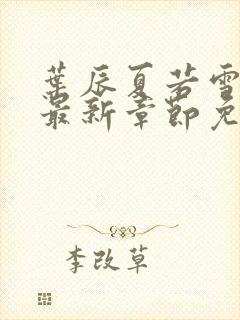 葉辰夏若雪
最新章節免
李改草